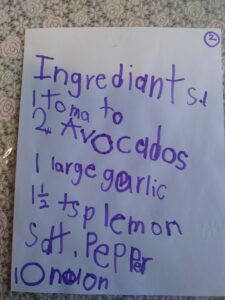 2
Ingrediants.
1 toma to
2 Avocados
1 large garlic
1½ tsp lemon
Salt, Pepper
1 Onoion